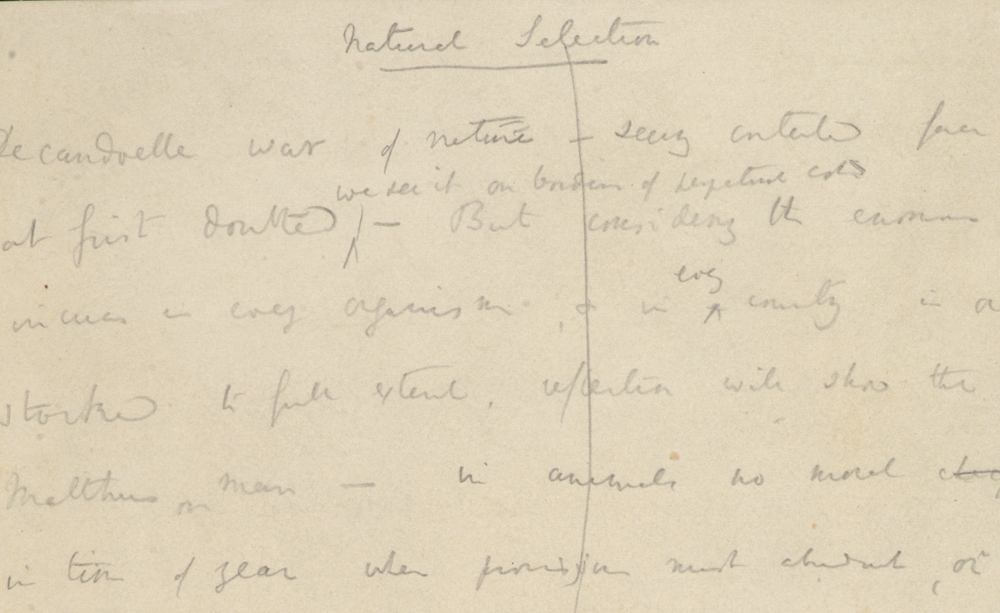 Natural Selection
Decandolle war of nature – seeing contented face
we see it on borders of perpetual cold
at first doubted – But considering the enormous
every
increase in every organism, & in country in a
stocked to full extent, reflection will show the
Malthus on man — in animals no moral
in time of year when provision most abundant, or